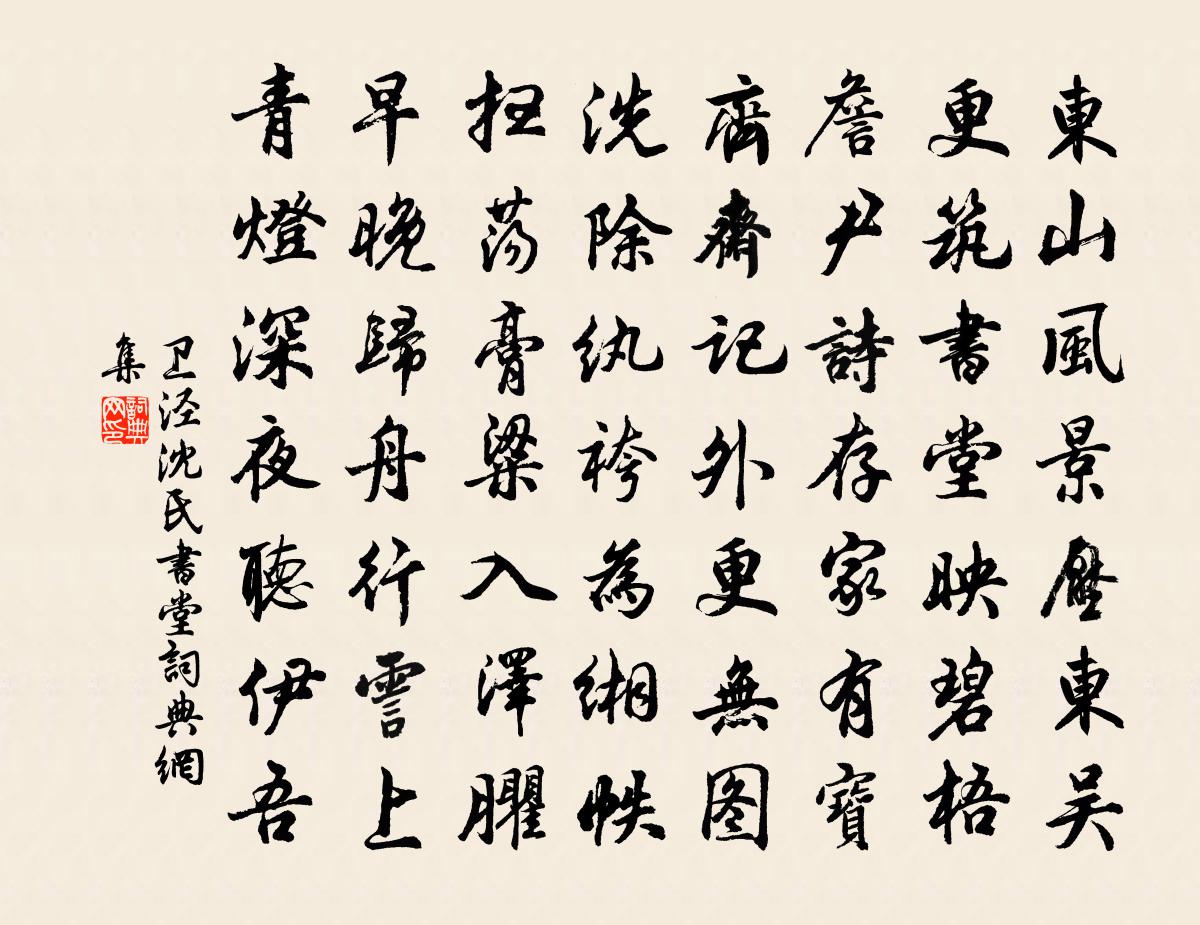 東山風景壓東吴
更筑書堂映碧梧
詹尹詩存家有寶
齊齋記外更無图
洗除纨袴為缃帙
扭荡膏粱入澤臞
早晚歸舟行霅上
青燈深夜聽伊吾
卫泾沈氏書堂詞典網
集
詞典
网印